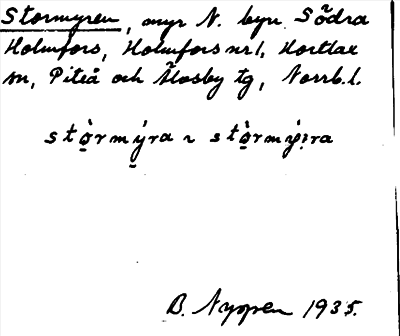 Stormyren, myr N. byn Södra
Holmfors, Holmfors nr 1, Hortlax
sn, Piteå och Älvsby tg, Norrb. l.
stò̤rmý̤ra ~ stò̤rmýi̯ra
B. Nyopen 1935.